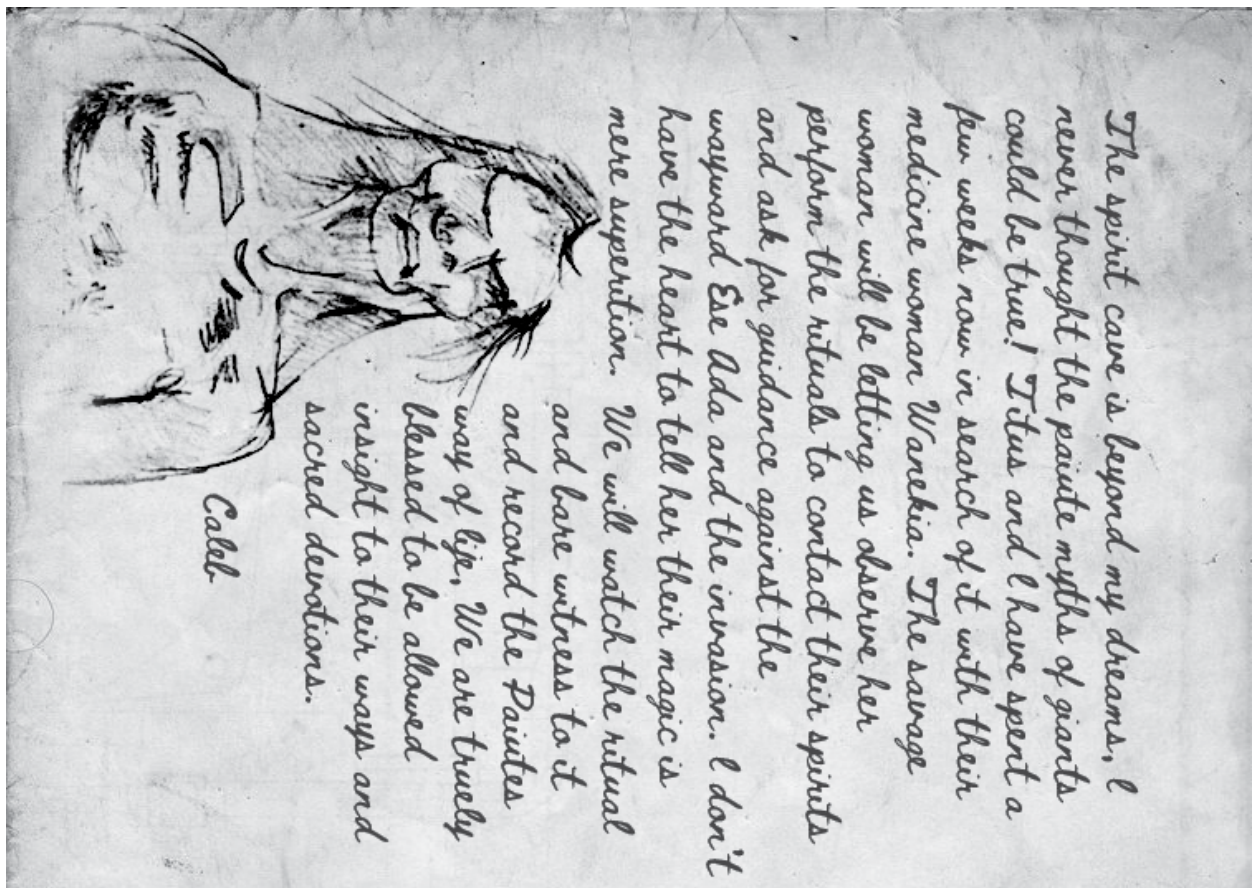 The spirit cave is beyond my dreams, I
never thought the paiute myths of giants
could be true! Titus and I have spent a
few weeks now in search of it with their
medicine woman Wanekia. The savage
woman will be letting us observe her
perform the rituals to contact their spirits
and ask for guidance against the
wayward Ese Ada and the invasion. I don't
have the heart to tell her their magic is
mere superition. We will watch the ritual
and bare witness to it
and record the Paiutes
way of life. We are truely
blessed to be allowed
insight to their ways and
sacred devotions.
Caleb